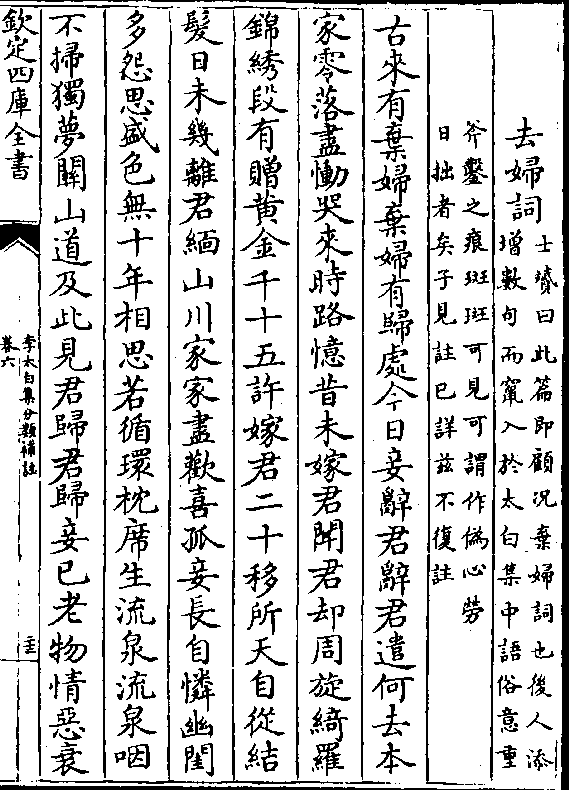 去婦詞士贇曰此篇即顧况棄婦詞也後人添
増數句而竄入於太白集中語俗意重
斧鑿之痕斑斑可見可謂作僞心勞
日拙者矣子見註已詳兹不復註
古來有棄婦棄婦有歸處今日妾辭君辭君遣何去本
家零落盡慟哭來時路憶昔未嫁君聞君却周旋綺羅
錦綉段有贈黄金千十五許嫁君二十移所天自從結
髮日未幾離君緬山川家家盡歡喜孤妾長自憐幽閨
多怨思盛色無十年相思若循環枕席生流泉流泉咽
不掃獨夢關山道及此見君歸君歸妾已老物情惡衰
欽定四庫全書
李太白集分類補註
卷六
二十三